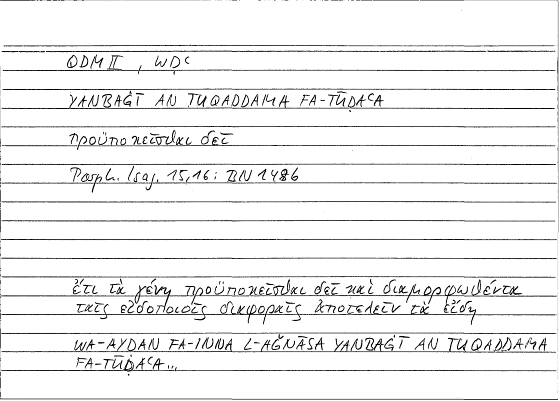 QDM II, WḌʿ
YANBAĠĪ AN TUQADDAMA FA-TŪḌAʿA
προϋποκεῖσθαι δεῖ
Porph. Isag. 15,16: BN 148b
ἔτι τὰ γένη προϋποκεῖσθαι δεῖ καὶ διαμορφωθέντα
ταῖς εἰδοποιοῖς διαφοραῖς ἀποτελεῖν τὰ εἴδη
WA-AYḌAN FA-INNA L-AǦNĀSA YANBAĠĪ AN TUQADDAMA
FA-TŪḌAʿA...